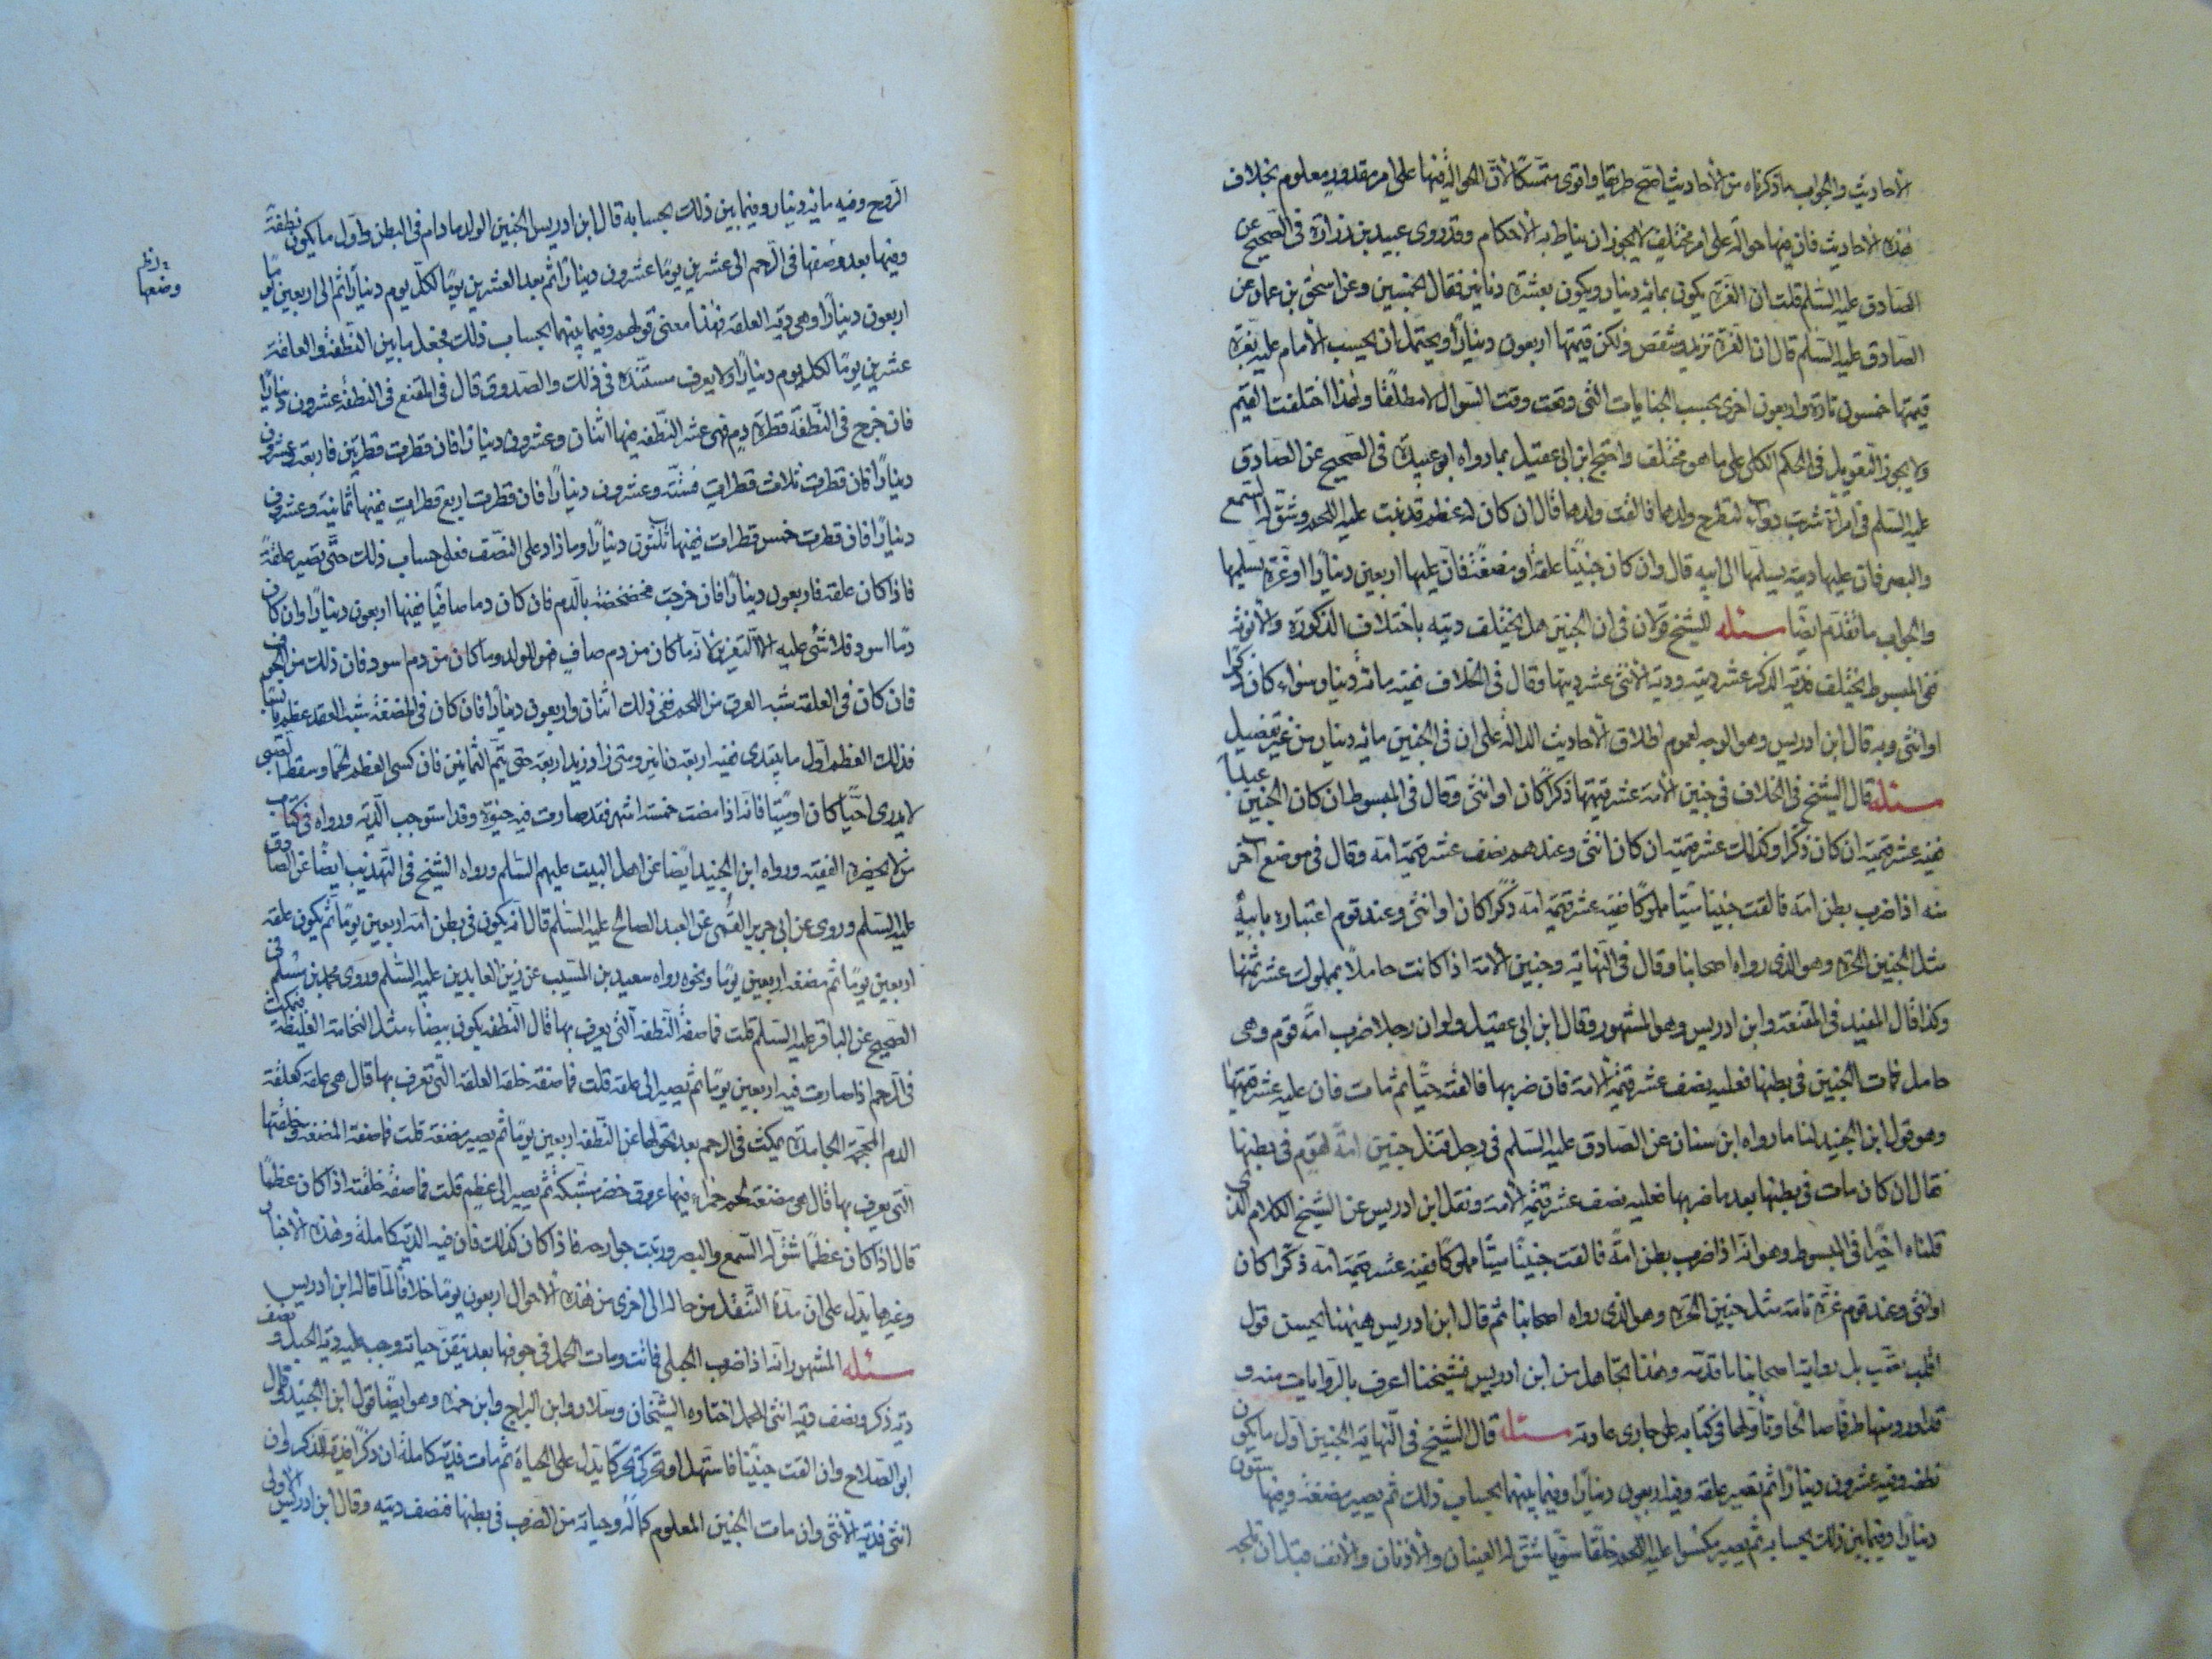 الأحاديث والجواب ما ذكرناه من الأحاديث اصح طريقا واقوى متمسكا لان الحوالة فيها على امر مقدور معلوم بخلاف
هذه الأحاديث فان فيها حوالة على امر مختلف لا يجوز ان يناط به الأحكام وقد روى عبيد بن زرارة في الصحيح عن
الصادق عليه السلم قلت ان الغرة يكون بمائة دينار ويكون بعشرة دنانير فقال بخمسين وعن اسحق بن عمار عن
الصادق عليه السلم قال ان الغرة تزيد وتنقص ولكن قيمتها اربعون دينارا ويحتمل ان يحسب الأمام عليه بغرة
قيمتها خمسون تارة واربعون اخرى بحسب الجنايات التي وقعت وقت السوال لا مطلقا ولهذا اختلفت القيم
ولا يجوز التعويل في الحكم الكلى على ما هو مختلف واحتج ابن ابى عقيل بما رواه ابو عبيدة في الصحيح عن الصادق
عليه السلم في امراة شربت دواء لتطرح ولدها فالقت ولدها قال ان كان له عظم قد نبت عليه اللحم وشق له السمع
والبصر فان عليها دية يسلمها الى ابيه قال وان كان جنينا علقة او مضغة فان عليها اربعين دينارا او غرة يسلمها
والجواب ما تقدم ايضا مسئله للشيخ قولان في ان الجنين هل يختلف ديته باختلاف الذكورة والأنوثة
ففى المبسوط يختلف فدية الذكر عشر ديته ودية الأنثى عشر ديتها وقال في الخلاف فيه مائة دينار سواء كان ذكرا
او انثى وبه قال ابن ادريس وهو الوجه لعموم اطلاق الأحاديث الدالة على ان في الجنين مائة دينار من غير تفصيل
مسئله قال الشيخ في الخلاف في جنين الأمة عشر قيمتها ذكرا كان او انثى وقال في المبسوط ان كان الجنين عبدا
ففيه عشر قيمته ان كان ذكرا وكذلك عشر قيمته ان كان انثى وعندهم نصف عشر قيمة امه وقال في موضع آخر
منه اذا ضرب بطن امة فالقت جنينا ميتا مملوكا ففيه عشر قيمة امه ذكرا كان او انثى وعند قوم اعتباره بابيه
مثل الجنين الحرة وهو الذى رواه اصحابنا وقال في النهاية وجنين الأمة اذا كانت حاملا بمملوك عشر ثمنها
وكذا قال المفيد في المقنعة وابن ادريس وهو المشهور وقال ابن ابى عقيل ولو ان رجلا ضرب امة قوم وهى
حامل فمات الجنين في بطنها فعليه نصف عشر قيمة الأمة فان ضربها فالقته حيا ثم مات فان عليه عشر قيمتها
وهو قول ابن الجنيد لنا ما رواه ابن سنان عن الصادق عليه السلم في رجل قتل جنين امة لقوم في بطنها
فقال ان كان مات في بطنها بعد ما ضربها فعليه نصف عشر قيمة الأمة ونقل ابن ادريس عن الشيخ الكلام الذى
قلناه اخيرا في المبسوط وهو انه اذا ضرب بطن امة فالقت جنينا ميتا مملوكا ففيه عشر قيمة امه ذكرا كان
او انثى وعند قوم غرة تامة مثل جنين الحرة وهو الذى رواه اصحابنا ثم قال ابن ادريس هيهنا يحسن قول
اقلب تصب بل رواية اصحابنا ما قدمه وهذا تجاهل من ابن ادريس فشيخنا اعرف بالروايات منه و
قد اورد منها طرفا صالحا وتاولها في كتابه على جارى عادته مسئله قال الشيخ في النهاية الجنين اول ما يكون
نطفة وفيه عشرون دينارا ثم تصير علقة وفيه اربعون دينارا وفيما بينهما بحساب ذلك ثم يصير مضغة وفيها ستون
دينارا وفيما بين ذلك بحسابه ثم يصير مكسوا عليه اللحم خلقا سويا شق له العينان والأذنان والأنف قبل ان تلجه
الروح وفيه مائة دينار وفيما بين ذلك بحسابه قال ابن ادريس الجنين الولد مادام في البطن واول ما يكون نطفة
وفيها بعد وضعها في الرحم الى عشرين يوما عشرون دينارا ثم بعد العشرين يوما لكل يوم دينارا ثم الى اربعين يوما
وضعها
اربعون دينارا وهى دية العلقة فهذا معنى قولهم وفيما بينهما بحساب ذلك فجعل ما بين النطفة والعلقة
عشرين يوما لكل يوم دينارا ولا يعرف مستنده في ذلك والصدوق قال في المقنع في النطفة عشرون دينارا
فان خرج في النطفة قطرة دم فهى عشر النطفة فيها اثنان وعشرون دينارا فان قطرت قطرتين فاربعة وعشرون
دينارا فان قطرت ثلاث قطرات فستة وعشرون دينارا فان قطرت اربع قطرات ففيها ثمانية وعشرون
دينارا فان قطرت خمس قطرات ففيها ثلثون دينارا وما زاد على النصف فعلى حساب ذلك حتى تصير علقة
فاذا كان علقة فاربعون دينارا فان خرجت مخضخضة بالدم فان كان دما صافيا ففيها اربعون دينارا وان كان
دما اسود فلا شئ عليه الا التعزير لانه ما كان من دم صاف فهو للولد وما كان من دم اسود فان ذلك من الجوف
فان كان في العلقة شبه العرق من اللحم ففى ذلك اثنان واربعون دينارا فان كان في المضغة شبه العقد عظم يابسا
فذلك العظم اول ما يبتدى ففيه اربعة دنانير ومتى زاد زيد اربعة حتى يتم الثمانين فان كسى العظم لحما وسقط الصبى
لا يدرى احيا كان او ميتا فانه اذا مضت خمسة اشهر فقد صارت فيه حيوة وقد استوجب الدية ورواه في كتاب
من لا يحضره الفقيه ورواه ابن الجنيد ايضا عن اهل البيت عليهم السلم ورواه الشيخ في التهذيب ايضا عن الصادق
عليه السلم وروى عن ابى جرير القمى عن العبد الصالح عليه السلم قال انه يكون في بطن امه اربعين يوما ثم يكون علقة
اربعين يوما ثم مضغة اربعين يوما ونحوه رواه سعيد بن المسيب عن زين العابدين عليه السلم وروى محمد بن مسلم في
الصحيح عن الباقر عليه السلم قلت فما صفة النطفة التي يعرف بها قال النطفة يكون بيضاء مثل النخامة الغليظة فيمكث
في الرحم اذا صارت فيه اربعين يوما ثم يصير الى علقة قلت فما صفة خلقة العلقة التي تعرف بها قال هى علقة كعلقة
الدم المحجمة الجامدة يمكث في الرحم بعد تحولها عن النطفة اربعين يوما ثم يصير مضغة قلت فما صفة المضغة وخلقتها
التي يعرف بها قال هى مضغة لحم حمراء فيها عروق خضر مشبكة ثم يصير الى عظم قلت فما صفة خلقته اذا كان عظما
قال اذا كان عظما شق له السمع والبصر ورتبت جوارحه فاذا كان كذلك فان فيه الدية كاملة وهذه الأخبار
وغيرها يدل على ان مدة التنقل من حالة الى اخرى من هذه الأحوال اربعون يوما خلافا لما قاله ابن ادريس
مسئله المشهور انه اذا ضرب الحبلى فماتت ومات الحمل في جوفها بعد تيقن حياته وجب عليه دية الحبلى ونصف
دية ذكر ونصف دية انثى للحمل اختاره الشيخان وسلار وابن البراج وابن حمزة وهو ايضا قول ابن الجنيد وقال
ابو الصلاح واذا القت جنينا فاستهل او تحرك تحركا يدل على الحياة ثم مات فديته كاملة ان ذكرا فدية الذكر وان
انثى فدية الأنثى وان مات الجنين المعلوم كماله وحياته من الضرب في بطنها فنصف ديته وقال ابن ادريس الأولى